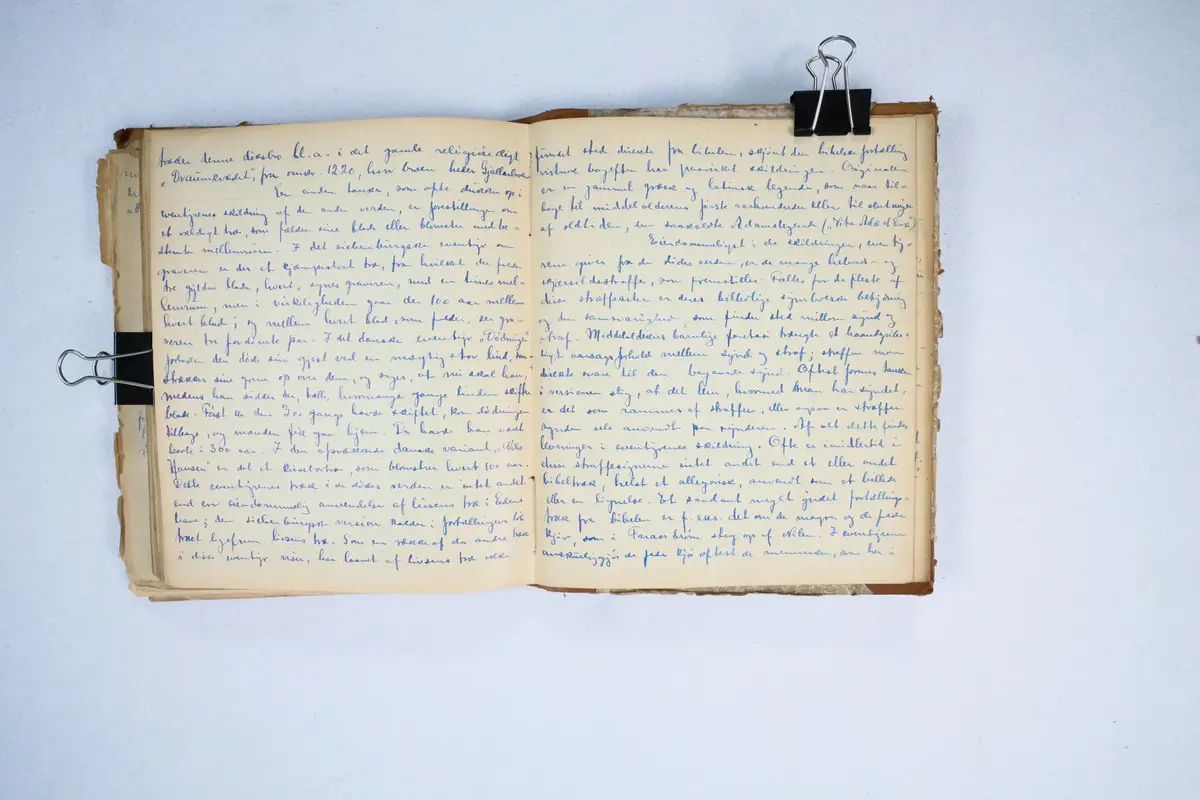 træder denne dödsbro bl. a. i det gamle religiöse digt
"Draumkvædet", fra omkr. 1220, hvor broen heder Gjallarbro
En anden tanke, som ofte dukker op i
eventyrenes skildring af den anden verden, er forestillingen om
et vældigt træ, som fælder sine blade eller blomster med be-
stemte mellemrum. I det siebenbürgske eventyr om
graveren er der et kjæmpestort træ, fra hvilket der falder
tre gyldne blade, hvert, synes graveren, med en times mel-
lemrum, men i virkeligheden gaar der 100 aar mellem
hvert blad; og mellem hvert blad, som falder, ser gra-
veren tre fordömte par. I det danske eventyr "Dödningen"
den döde sin gjest ved en mægtig stor lind,
strækker sine grene op over dem, og siger, at nu skal han,
medens han sidder der, tælle, hvormange gange linden skifter
blade. Först da den 300 gange havde skiftet, kom dödningen
tilbage, og manden fik gaa hjem. Da havde han været
borte i 300 aar. I den danske variant "Nils
Hansen" er det et kirsebærtræ, som blomstrer hvert 100 aar.
Dette eventyrenes træ i de dödes verden er intet andet
end en eiendommelig anvendelse af livsens træ i Edens
have; den siebenbürgske version kalder i fortællingens löb
træet ligefrem livsens træ. Som en række af de andre træk
i disse eventyr viser, har laanet af livsens træ ikke
fundet sted direkte fra bibelen, skjönt den bibelske fortælling
har paavirket skildringen. Originalen
er en gammel græsk og latinsk legende, som naar til-
bage til middelalderens förste aarhundreder eller til slutningen
af oldtiden, den saakaldte Adamslegende ("Vita Adæ et Evæ").
Eiendommeligt i de skildringer, eventy-
rene giver fra de dödes verden, er de mange helvedes- og
skjærsildsstraffe, som fremstilles. Fælles for de fleste af
disse straffearter er deres billedlige symbolske betydning
og den samsvarighed, som finder sted mellem synd og
straf. Middelalderens barnlige fantasi trængte et haandgribe-
ligt aarsagsforhold mellem synd og straf; straffen maa
direkte svare til den begaaede synd. Oftest formes tanken
i versionen slig, at det lem, hvormed man har syndet,
er det som rammes af straffen, eller ogsaa er straffen
synden selv anvendt paa synderen. Af alt dette findes
levninger i eventyrenes skildring. Ofte er imidlertid i
dem straffescenerne intet andet end et eller andet
bibeltræk, helst et allegorisk, anvendt som et billede
eller en lignelse. Et saadant meget yndet fortællings-
træk fra bibelen er f. eks. det om de magre og de fede
kjör, som i Faraos dröm steg op af Nilen. I eventyrene
anskueliggjör de fede kjör oftest de mennesker, som her i